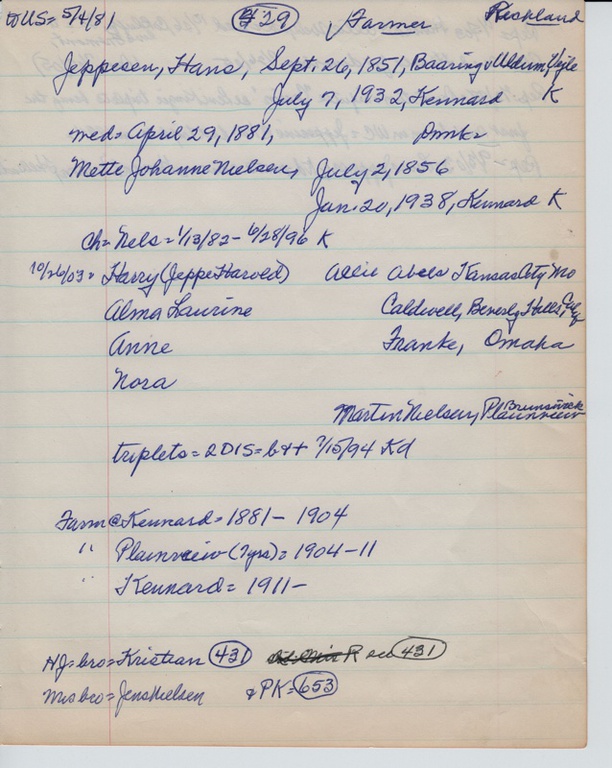 WUS = 5/4/81 429 Farmer Richland
Jeppesen, Hans, Sept. 26, 1851, Baaring v Uldum, Vejle
July 7, 1932, Kennard K
med = April 29, 1881, Dmk
Mette Johanne Nielsen, July 2, 1856
Jan. 20, 1938, Kennard K
Ch = Nels = 1/13/82 - 6/28/96 K
10/26/03 = Harry (Jeppe Harved) Allie Abels Kansas City Mo
Alma Laurine Caldwell, Beverly Hills,
Anne Franke, Omaha
Nora
Martin Nielsen, Plainview Brunswick
triplets = 2D1S = b++ 7/15/94 Kd
Farm @ Kennard = 1881 - 1904
" Plainview (7yrs) = 1904 - 11
" Kennard = 1911 -
HJ = bro = Kristian 431 R see 431
Mrs bro = Jens Nielsen & PK = 653